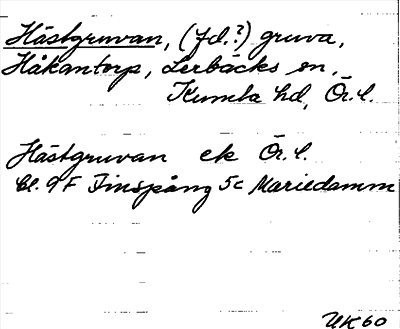 Hästgruvan, (fd.?) gruva,
Håkantorp, Lerbäcks sn,
Kumla hd, Ör. l.
Hästgruvan ek Ör. l.
Bl. 9F Finspång 5c Mariedamm
UK 60